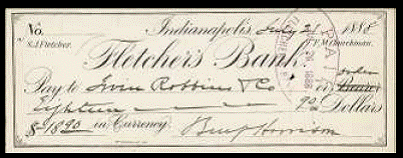 No. Indianapolis, July 21 1888
S.J. Fletcher. F.M. Churchman.
Fletcher's Bank.
PAID
Pay to Irwin Robbins & Co or order Bearer
Eighteen 90 Dollars
$18.90 in Currency. Benj Harrison